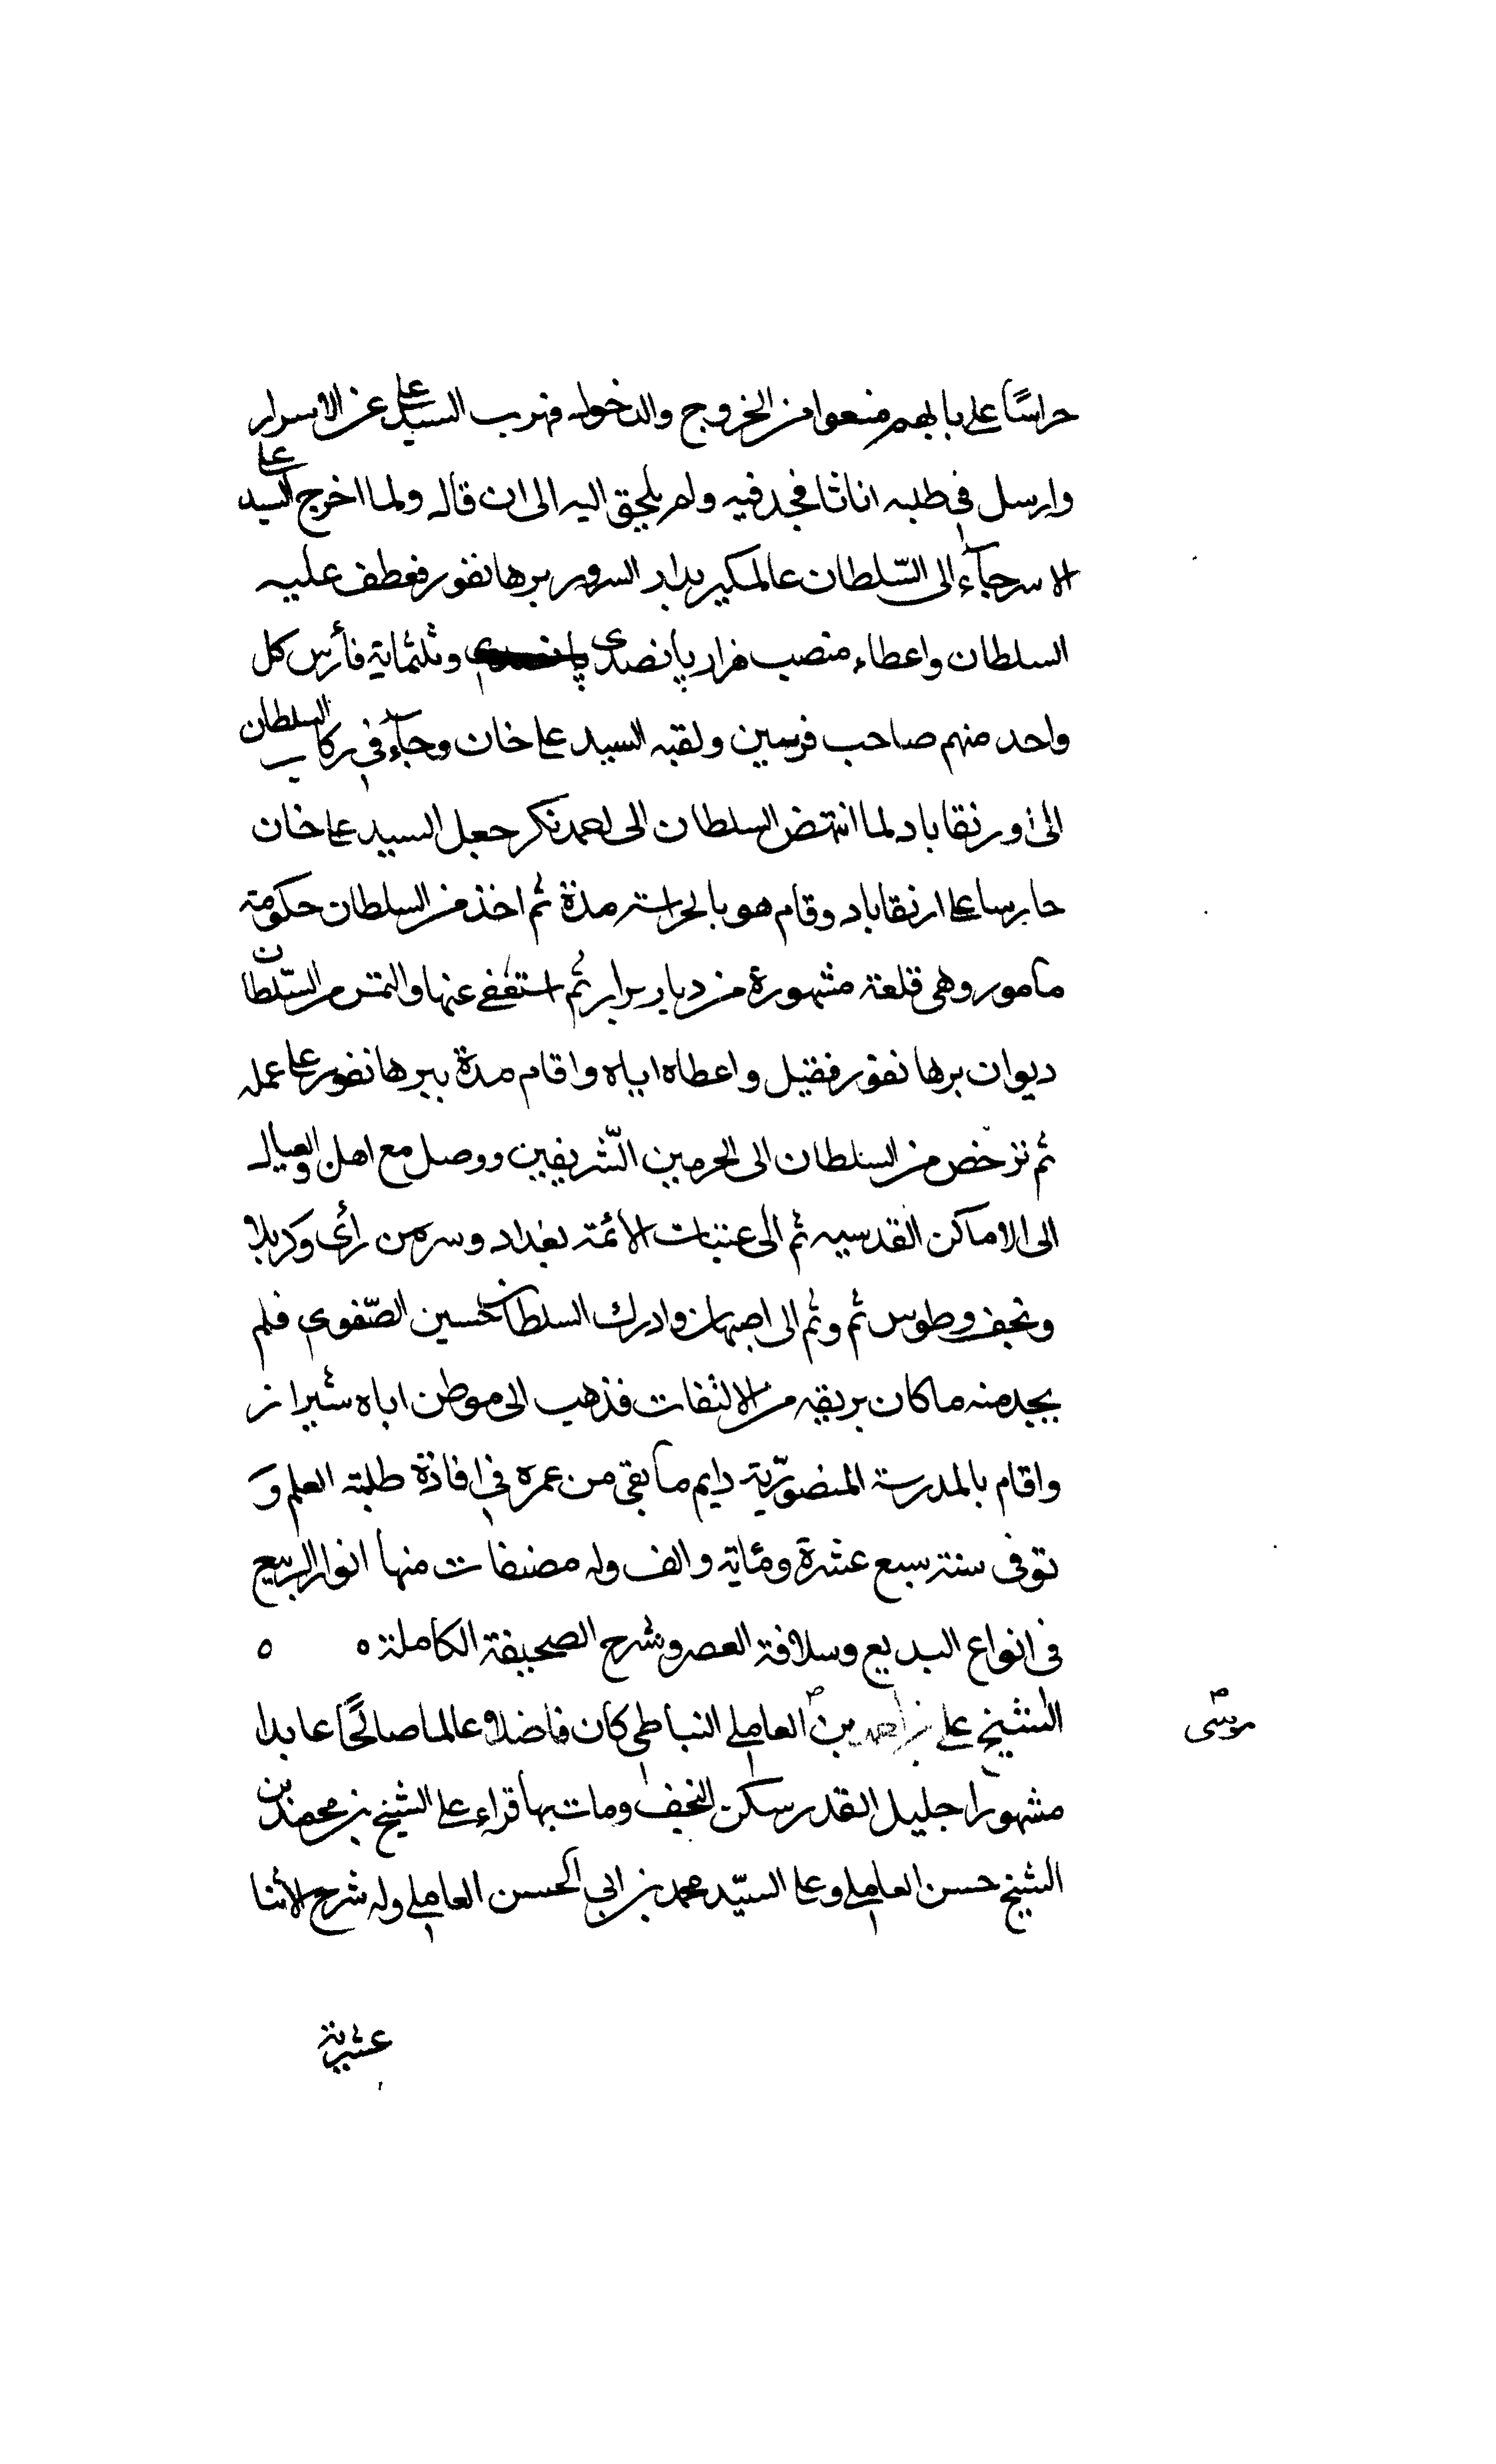 حراسًا على بابهم منعوا من الخروج والدخول فهرب السيد على عن الاسرار
وارسل فى طلبه اناثا فجد فيه ولم يلحق اليه الى ان قال ولما اخرج السيد على
الاسر جاء الى السّلطان عالمكير بدار السرور برهانفور فعطف عليه
السلطان واعطاء منصب هزار پانصدى وثلثماية فأرس كل
واحد منهم صاحب فرسين ولقبه السيد على خان وجاء فى ركاب السلطان
الى اورنقاباد لما انتهض السلطان الى احمدنكر جعل السييد على خان
حارسا على ارنقاباد وقام هو بالحراسته مدة ثم اخذ من السلطان حكومة
مامور وهى قلعة مشهورة من ديار برار ثم استعفى عنها والتمس من السّلطان
ديوان برهانفور فقبل واعطاه اياه واقام مدة ببرهانفور على عمله
ثم ترخّض من السلطان الى الحرمين الشّريفين ووصل مع اهل والعيال
الى الاماكن القدسيه ثم الى عتبات الأئمة بغداد وسر من رأى وكربلا
ونجف وطوس ثم وثم الى اصبهان وادرك السلطان حسين الصّفوى فلم
يجد منه ما كان بريقه من الالثفات فذهب الى موطن اباه شيراز
واقام بالمدرسة المنصوريّة دايم ما بقى من عمره فى افادة طلبة العلم و
توفى سنة سبع عشرة ومئاية والف وله مصنفات منها انوار الربيع
فى انواع البديع وسلافة العصر وشرح الصحيفة الكاملة ٥ ٥
الشيخ على بن احمد بن العاملى النباطى كان فاضلا عالما صالحًا عابدا
موسى صح
مشهورا جليل القدر سكن النجف ومات بها قراء على الشيخ بن محمد بن
الشيخ حسن العاملى وعلى السيّد محمد بن ابى الحسن العاملى وله شرح الأثنا
عشرية